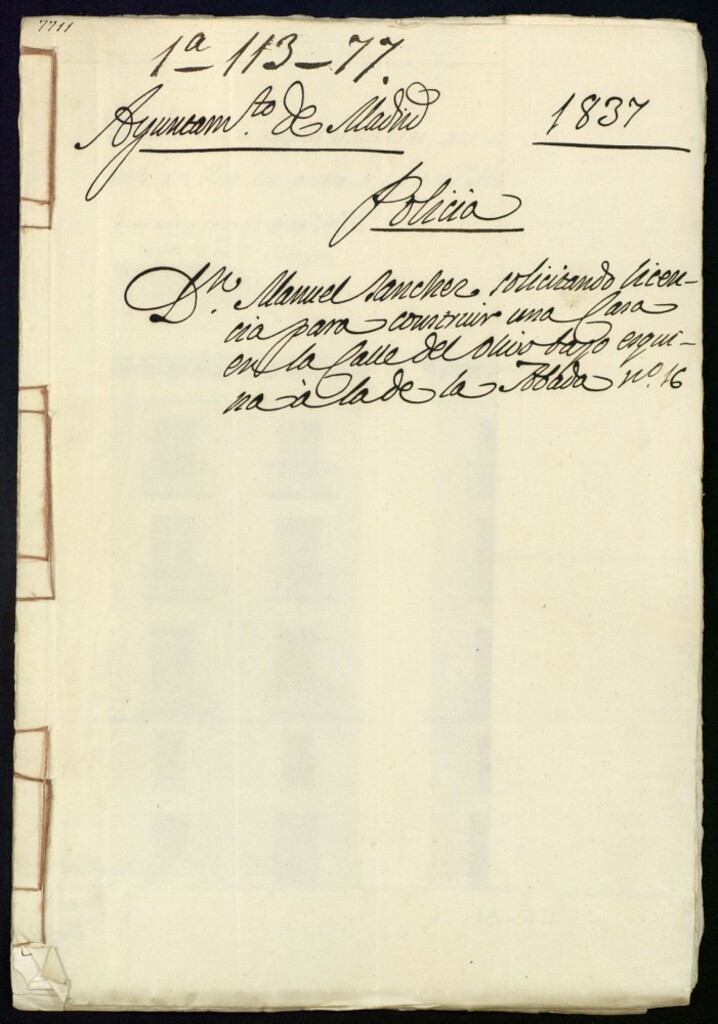 7711
1ª 113-77.
Ayuntamto. de Madrid
1837
Policia
Dn. Manuel Sanchez, solicitando licen-
cia para construir una Casa
en la Calle del Olivo bajo esqui-
na à la de la Abada no. 16